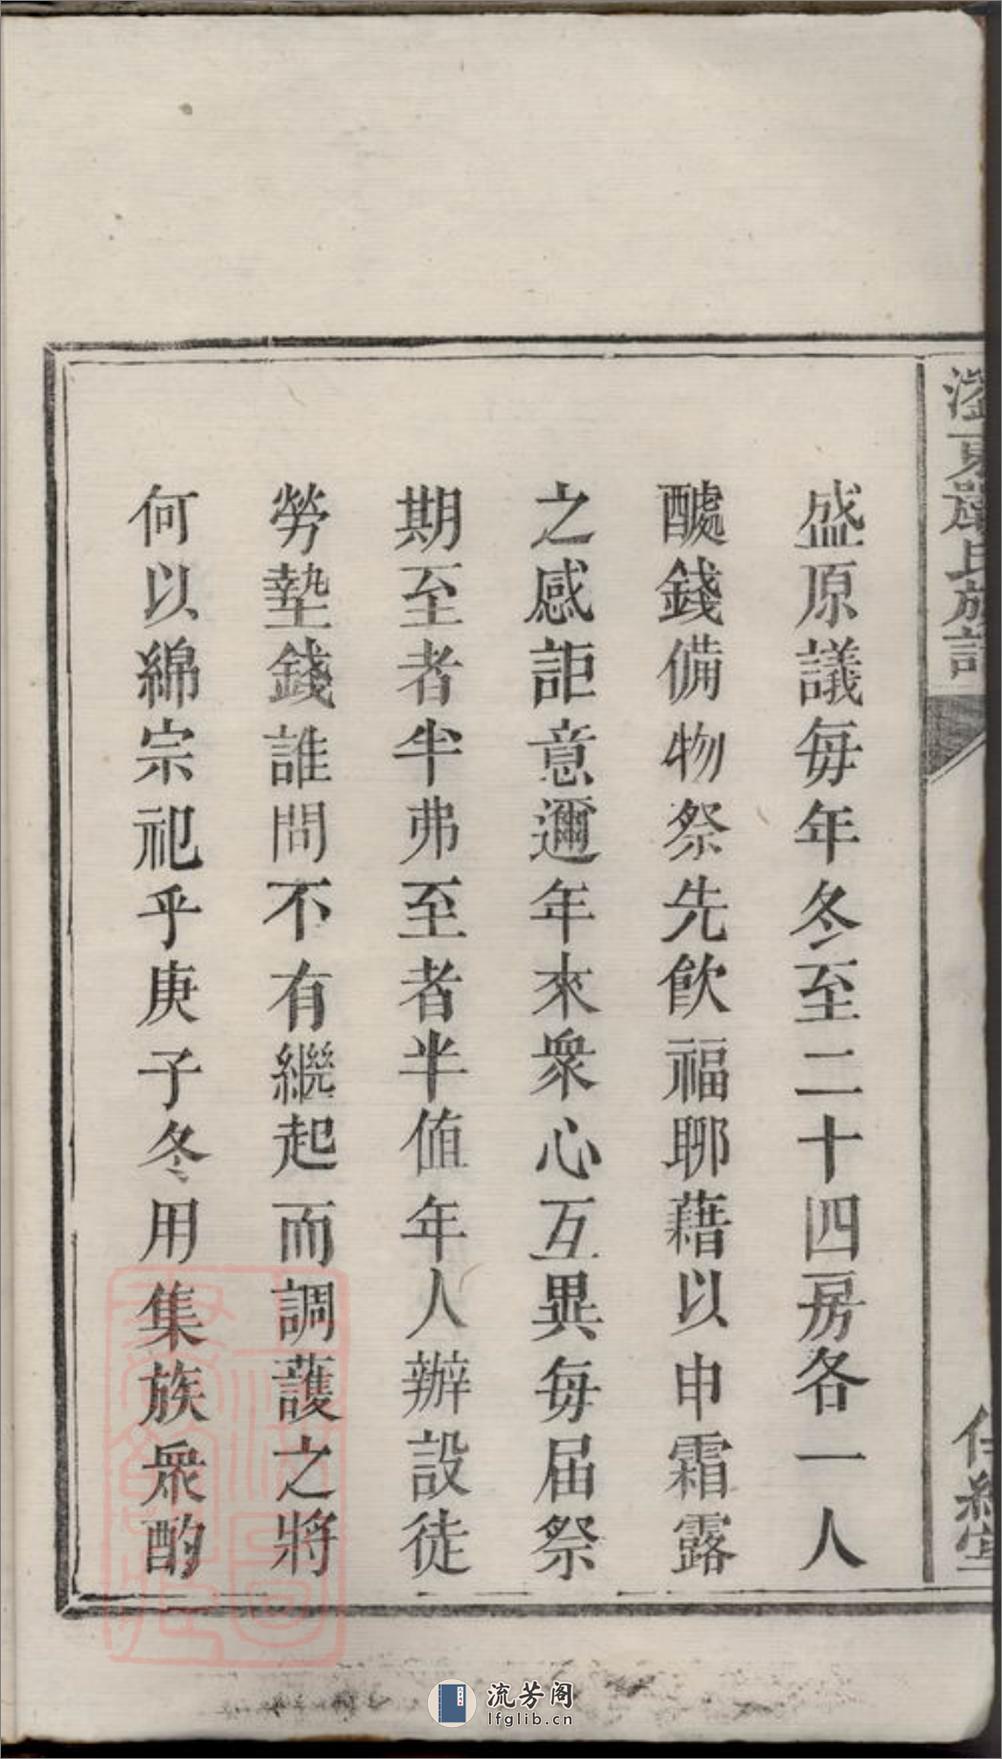 盛原議每年冬至二十四房各一人
醵錢備物祭先飲福聊藉以申霜露
之感詎意邇年來衆心互異每屆祭
期至者半弗至者半值年人辦設徒
勞墊錢誰問不有繼起而調護之將
何以綿宗祀乎庚子冬用集族衆酌
流芳阁
lfglib.cn